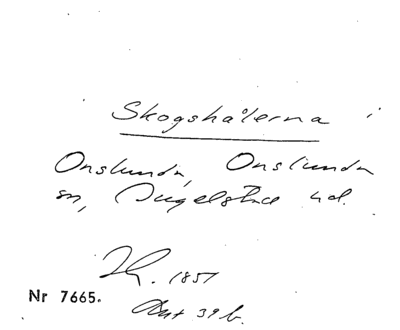 Skogshålerna i
Onslunda, Onslunda
sn, Ingelstads hd.
1851
Nr 7665. Akt 39 b.